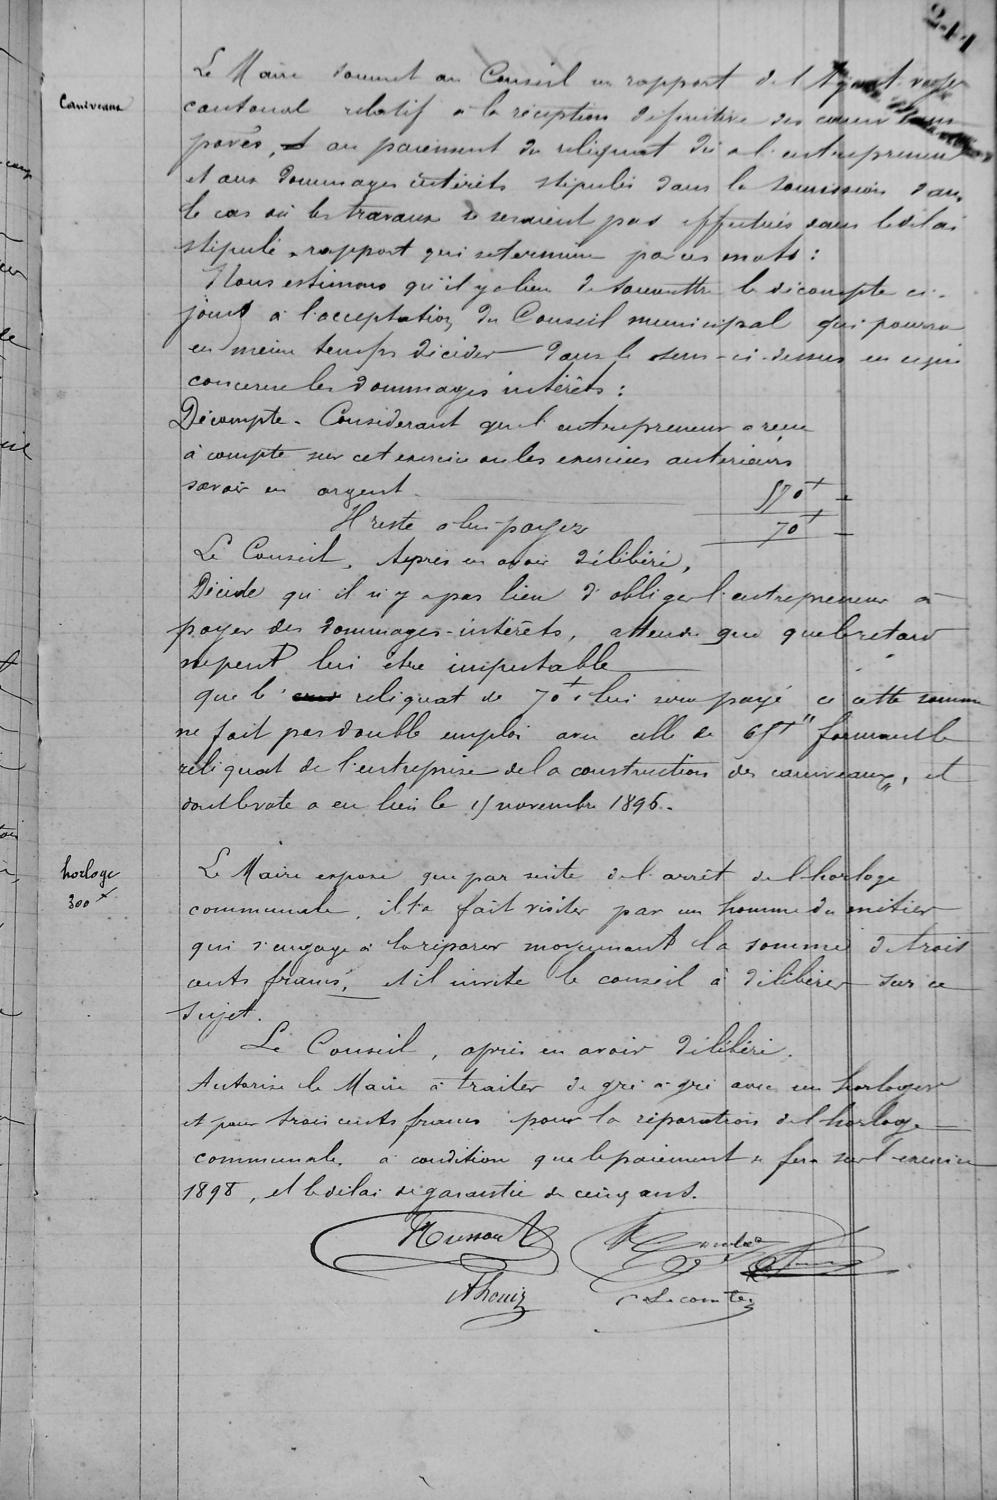 241
Caniveaux
Le Maire soumet au Conseil un rapport de l'Agent voyer
cantonal relatif à la réception définitive des caniveaux
pavés, et au paiement du reliquat dû à l'entrepreneur
et aux dommages intérêts stipulés dans la soumission dans
le cas où les travaux ne seraient pas effectués dans le délai
stipulé, rapport qui se termine par ces mots :
Nous estimons qu'il y a lieu de soumettre le décompte ci-
joint à l'acceptation du Conseil municipal qui pourra
en même temps décider dans le sens ci-dessus en ce qui
concerne les dommages intérêts :
Décompte - Considérant que l'entrepreneur a reçu
à compte sur cet exercice ou les exercices antérieurs
savoir en argent
Il reste à lui payer 70f
Le Conseil, Après en avoir délibéré,
Décide qu'il n'y a pas lieu d'obliger l'entrepreneur à
payer des dommages-intérêts, attendu que le retard
ne peut lui être imputable
que le reliquat de 70f lui sera payé si cette somme
ne fait pas double emploi avec celle de formant le
réliquat de l'entreprise de la construction des caniveaux, et
dont le vote a eu lieu le 15 novembre 1896.
horloge
300f
Le Maire expose que par suite de l'arrêt de l'horloge
communale, il l'a fait visiter par un homme du métier
qui s'engage à la réparer moyennant la somme de trois
cents francs, et il invite le conseil à délibérer sur ce
sujet.
Le Conseil, après en avoir délibéré.
Autorise le Maire à traiter de gré à gré avec un horloger
et pour trois cents francs pour la réparation de l'horloge
communale, à condition que le paiement se fera sur l'exercice
1898, et le délai de garantie de cinq ans.
Lecomte